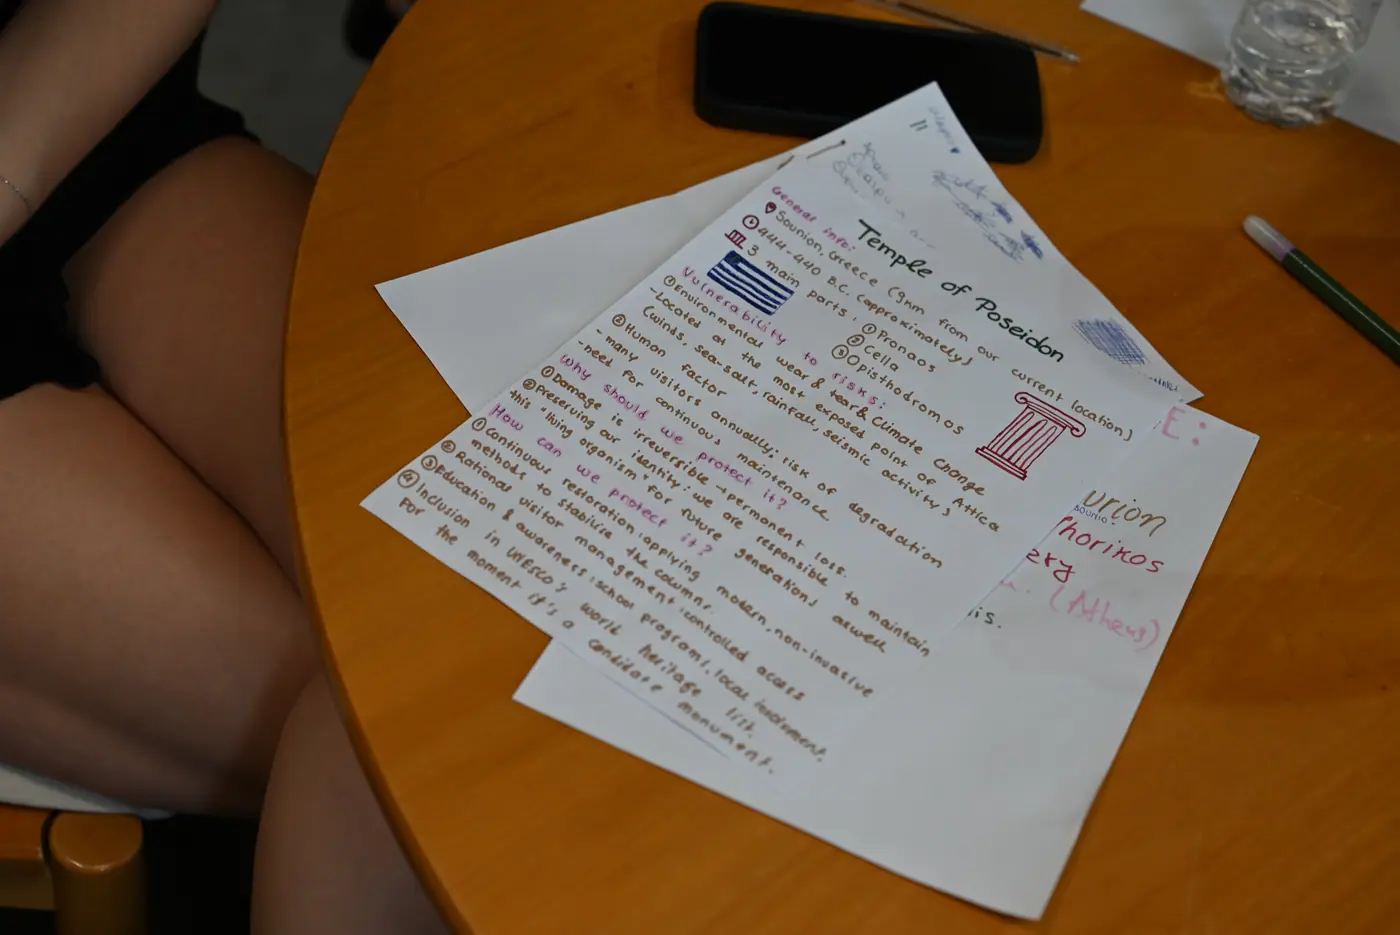 Temple of Poseidon
General info:
Sounion, Greece (9km from our current location)
444-440 B.C. (approximately)
3 main parts: ① Pronaos
② Cella
③ Opisthodromos
Vulnerability to risks:
① Environmental wear & tear & Climate Change
-Located at the most exposed point of Attica
(winds, sea-salt, rainfall, seismic activity)
② Human factor
- many visitors annually: risk of degradation
-need for continuous maintenance
Why should we protect it?
① Damage is irreversible → permanent loss.
② Preserving our identity: we are responsible to maintain
this "living organism" for future generations aswell
How can we protect it?
① Continuous restoration, applying modern, non-invasive
methods to stabilise the columns.
② Rational visitor management: controlled access
③ Education & awareness: school programs, local involvement.
④ Inclusion in UNESCO's world heritage list.
For the moment it's a candidate monument.
E:
urion
sounio
Thorikos
ery
(Athens)
is.